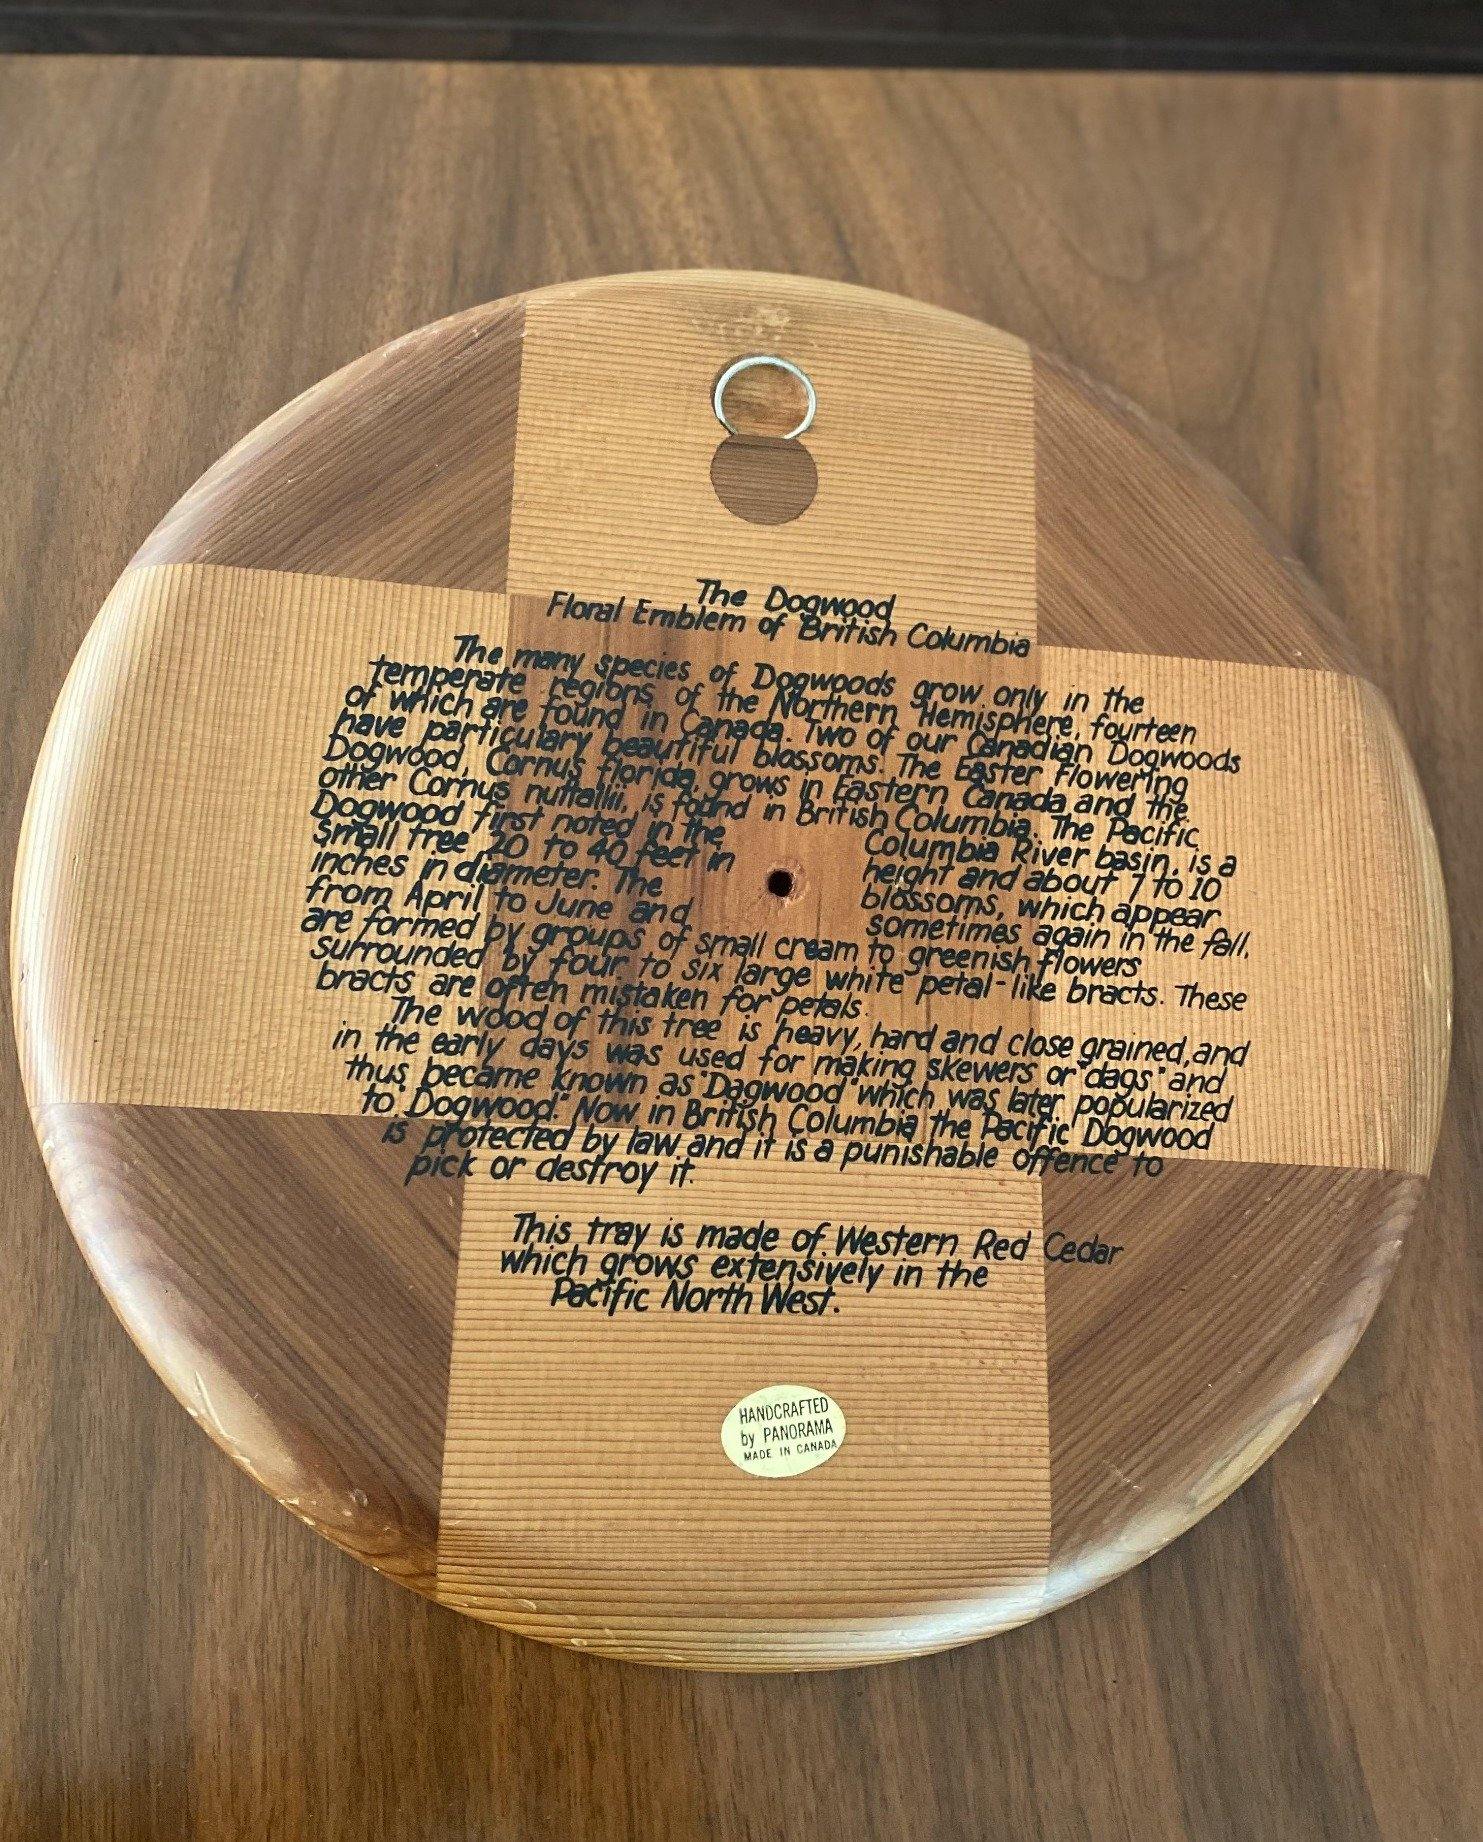 The Dogwood
Floral Emblem of British Columbia
The many species of Dogwoods grow only in the
temperate regions of the Northern Hemisphere, fourteen
of which are found in Canada. Two of our Canadian Dogwoods
have particulary beautiful blossoms. The Easter Flowering
Dogwood, Cornus florida, grows in Eastern Canada and the
other Cornus nuttallii, is found in British Columbia. The Pacific
Dogwood first noted in the Columbia River basin, is a
small tree 20 to 40 feet in height and about 7 to 10
inches in diameter. The blossoms, which appear
from April to June and sometimes again in the fall,
are formed by groups of small cream to greenish flowers
surrounded by four to six large white petal-like bracts. These
bracts are often mistaken for petals.
The wood of this tree is heavy, hard and close grained, and
in the early days was used for making skewers or "dags" and
thus became known as "Dagwood" which was later popularized
to "Dogwood." Now in British Columbia the Pacific Dogwood
is protected by law and it is a punishable offence to
pick or destroy it.
This tray is made of Western Red Cedar
which grows extensively in the
Pacific North West.
HANDCRAFTED
by PANORAMA
MADE IN CANADA